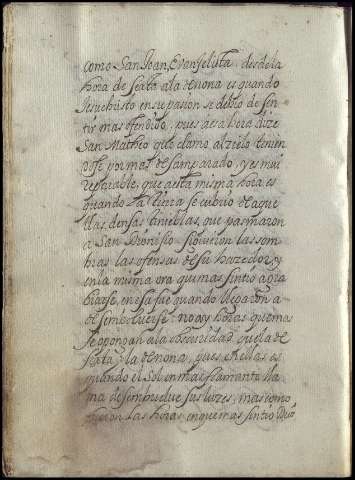 como San Joan Evangelista, desde la
hora de sexta a la de nona es quando
Jesuchristo en su pasion se debio de sen
tir mas ofendido, pues aesa hora dize
San Matheo q̃ clamo al zielo
por mas desamparado, y es mui
reparable, que aesta misma hora es
quando la tierra se cubrio de aque
llas densas tinieblas, que pasmaron
a San Dionisio. siguieron las som
bras las ofensas de su hazedor, y
en la misma ora qui mas sintio agra
biarse, en esa fue quando llegaron a
. no ay horas que mas
se opongan a la obscuridad, que la de
sexta, la de nona, pues en ellas es
quando el Sol en mas flamante lla
ma desembuelue sus luzes, mas como
fueron las horas en que mas sintio Dios